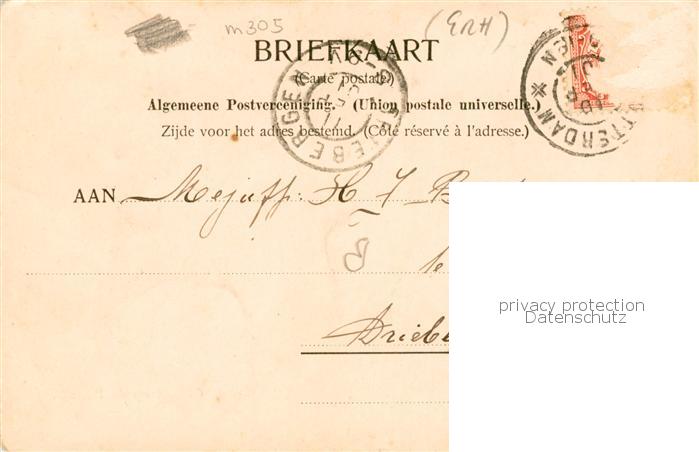 m305
(GRH)
BRIEFKAART
(Carte postale.)
Algemeene Postvereeniging. (Union postale universelle.)
Zijde voor het adres bestemd. (Côté réservé à l'adresse.)
DRIEBERGEN
ROTTERDAM
AAN Mejuff: H J B
B
te
Driebe
privacy protection
Datenschutz